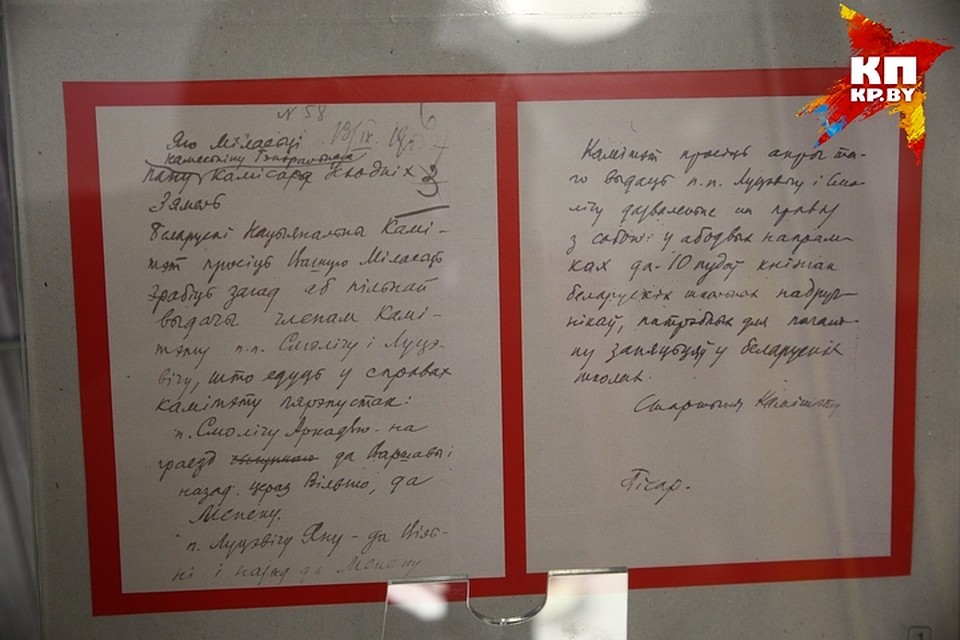 N 58
Яго Міласьці 13/IX. 19
камеснiку Генеральнага
пану Камісара Усходніх
Зямель
Беларускі Нацыянальны Камі-
тэт просіць Вашую Міласьць
зрабіць загад аб пільнай
выдачы членам Камі-
тэту п.п. Смолічу і Луцэ-
вічу, што едуць у справах
камітэту пярэпустак:
п. Смолічу Аркадзю - на
праезд да Варшавы і
назад цераз Вільню, да
Менску.
п. Луцэвічу Яну - да Вільні
ні і назад да Менску
Камітэт просіць апры та-
го выдаць п.п. Луцэвічу і Смо-
лічу дазваленьне на правоз
з сабой у абодвых напрам-
ках да 10 пудоў кніжак
беларускіх школьных падруч-
нікаў, патрэбных для пачат-
ку заняцьцяў у беларускіх
школах.
Старшыня Камітэту
Пісар.
КП
KP.BY
1